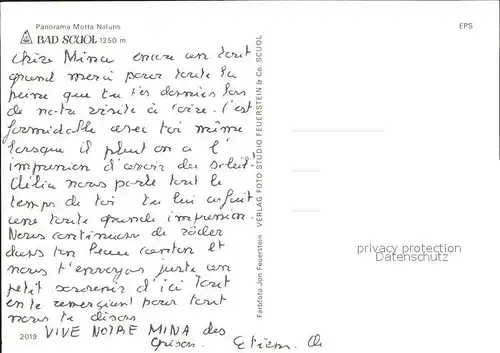 Panorama Motta Naluns
BAD SCUOL 1250 m
EPS
Chère Mina encore un tout
grand merci pour toute la
peine que tu t'es donnée lors
de notre visite à Coire. C'est
formidable avec toi même
lorsque il pleut on a l'
impression d'avoir du soleil!
Célia nous parle tout le
temps de toi tu lui as fait
une toute grande impression.
Nous continuons de rôder
dans ton beau canton et
nous t'envoyons juste un
petit souvenir d'ici tout
en te remerciant pour tout
nous te disons
VIVE NOTRE MINA des
Grisons.
2019
Farbfoto Jon Feuerstein VERLAG FOTO STUDIO FEUERSTEIN & Co. SCUOL
privacy protection
Datenschutz